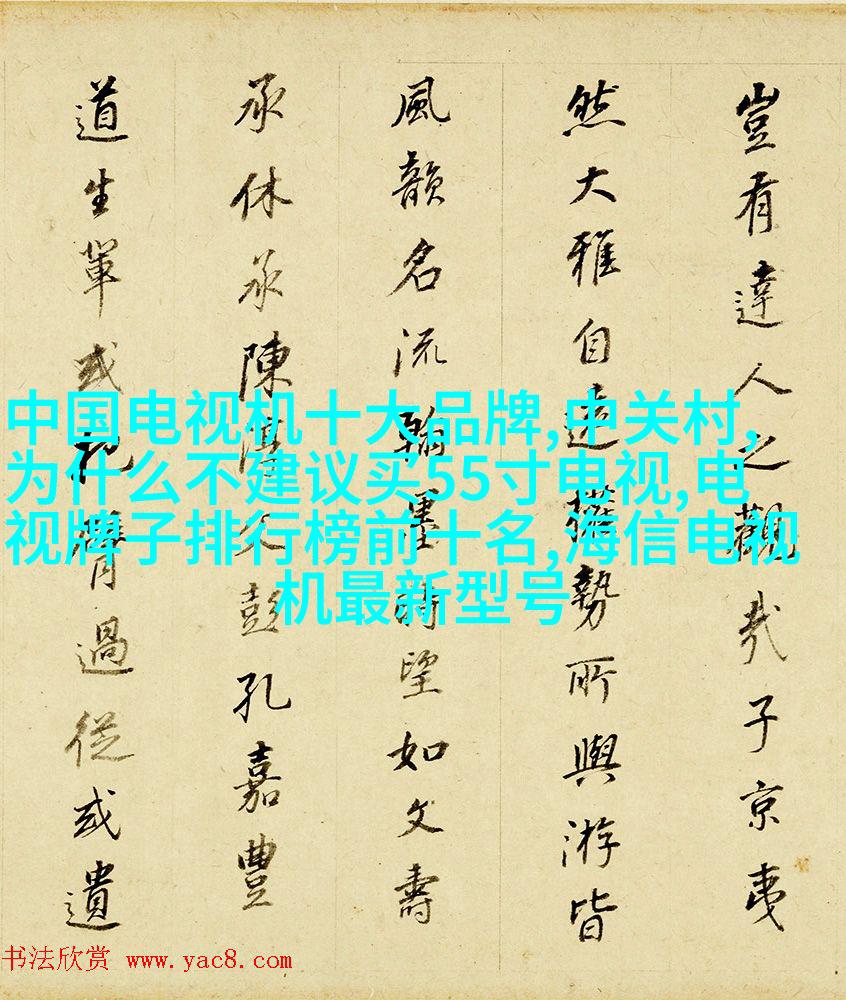 豈有達人之觀哉子京夷
然大雅自遠權勢所與游皆
風韻名流翰墨時望如文壽
承休承陳淳父彭孔嘉豐
道生輩或祝膺過從或遺
中国电视机十大品牌,中关村,
为什么不建议买55寸电视,电
视牌子排行榜前十名,海信电视
机最新型号
书法欣赏 www.yac8.com